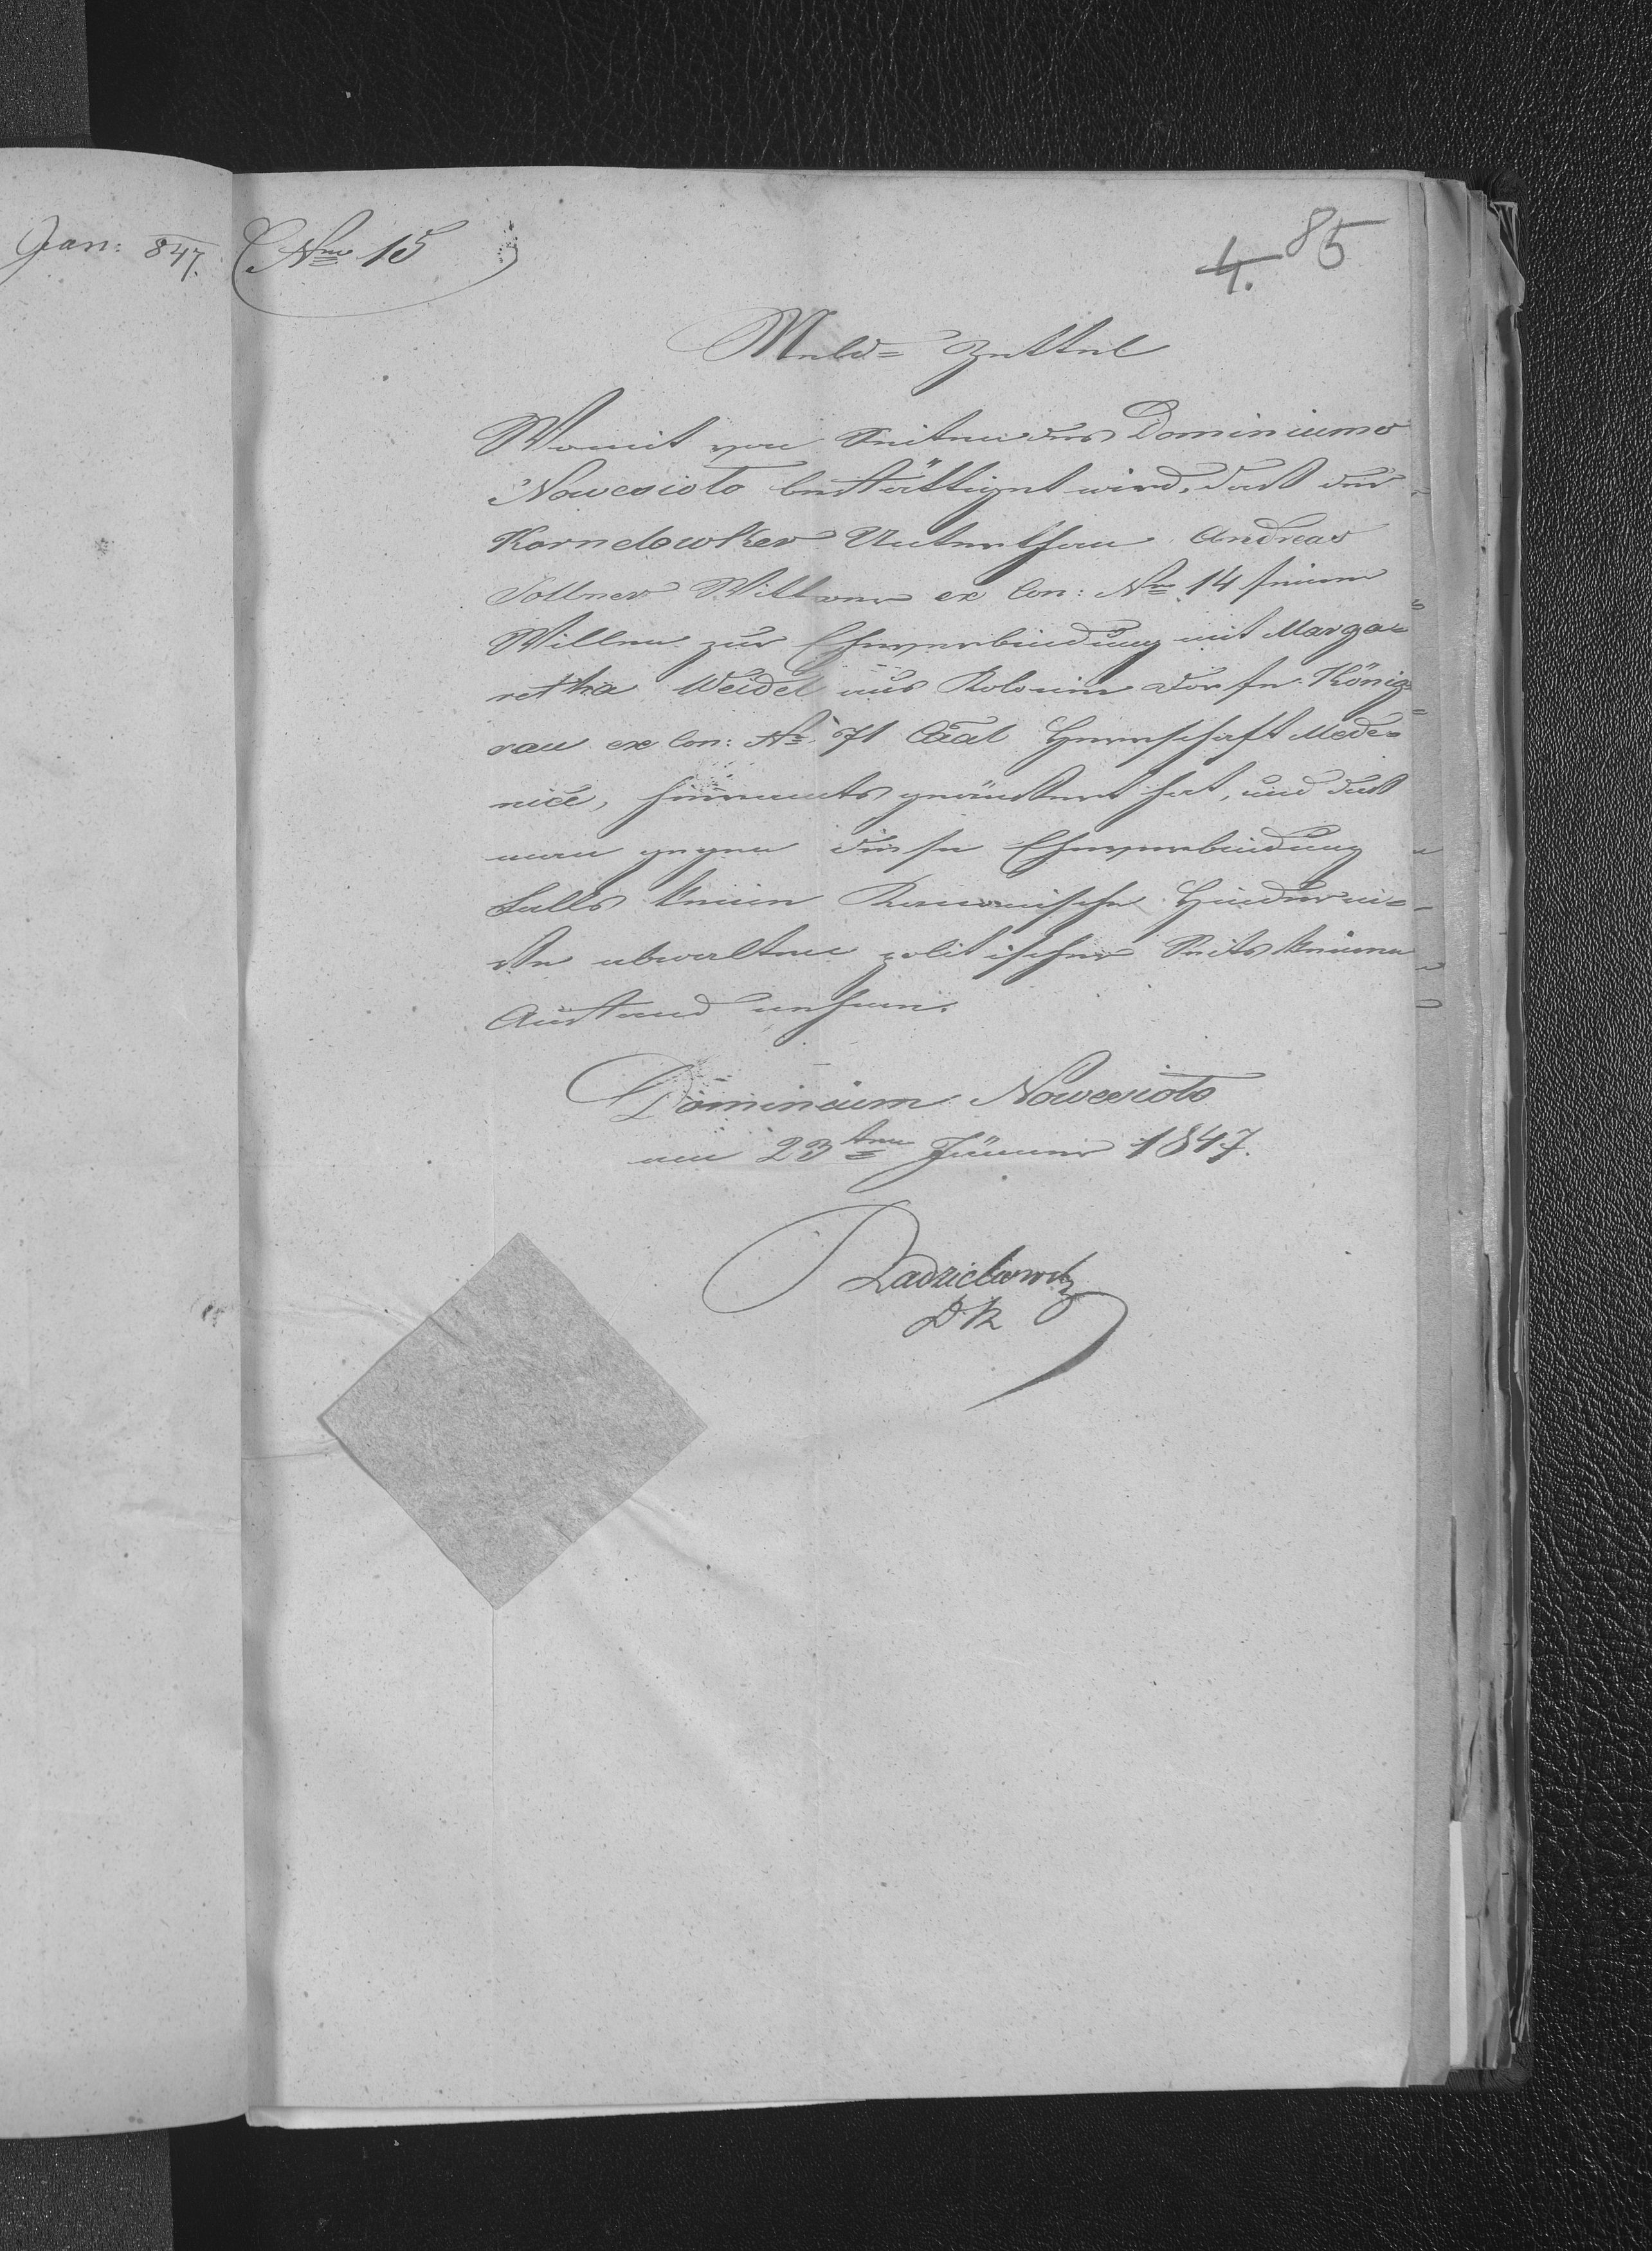 Jan: 847.
Nro 15
4. 85
Meld= Zettel
Womit von Seiten des Dominiums
Nowesioto bestättiget wird, daß der
Kornelowker Unterthan Andreas
Sollner Wittwer ex Con: Nro 14 seinen
Willen zur Eheverbindung mit Marga=
retha Weidel aus Kolonie Dorfe König=
sau ex Con: No 71 Caal Herrschaft Mede=
nice, hieramts geäußert hat, und daß
man gegen diese Eheverbindung
falls keine Kanonische Hinderni=
ße obwalten politischer Seits keinen
Anstand nehme.
Dominium Nowesioto
am 23ten Jänner 1847.
Radzichowsky
DR